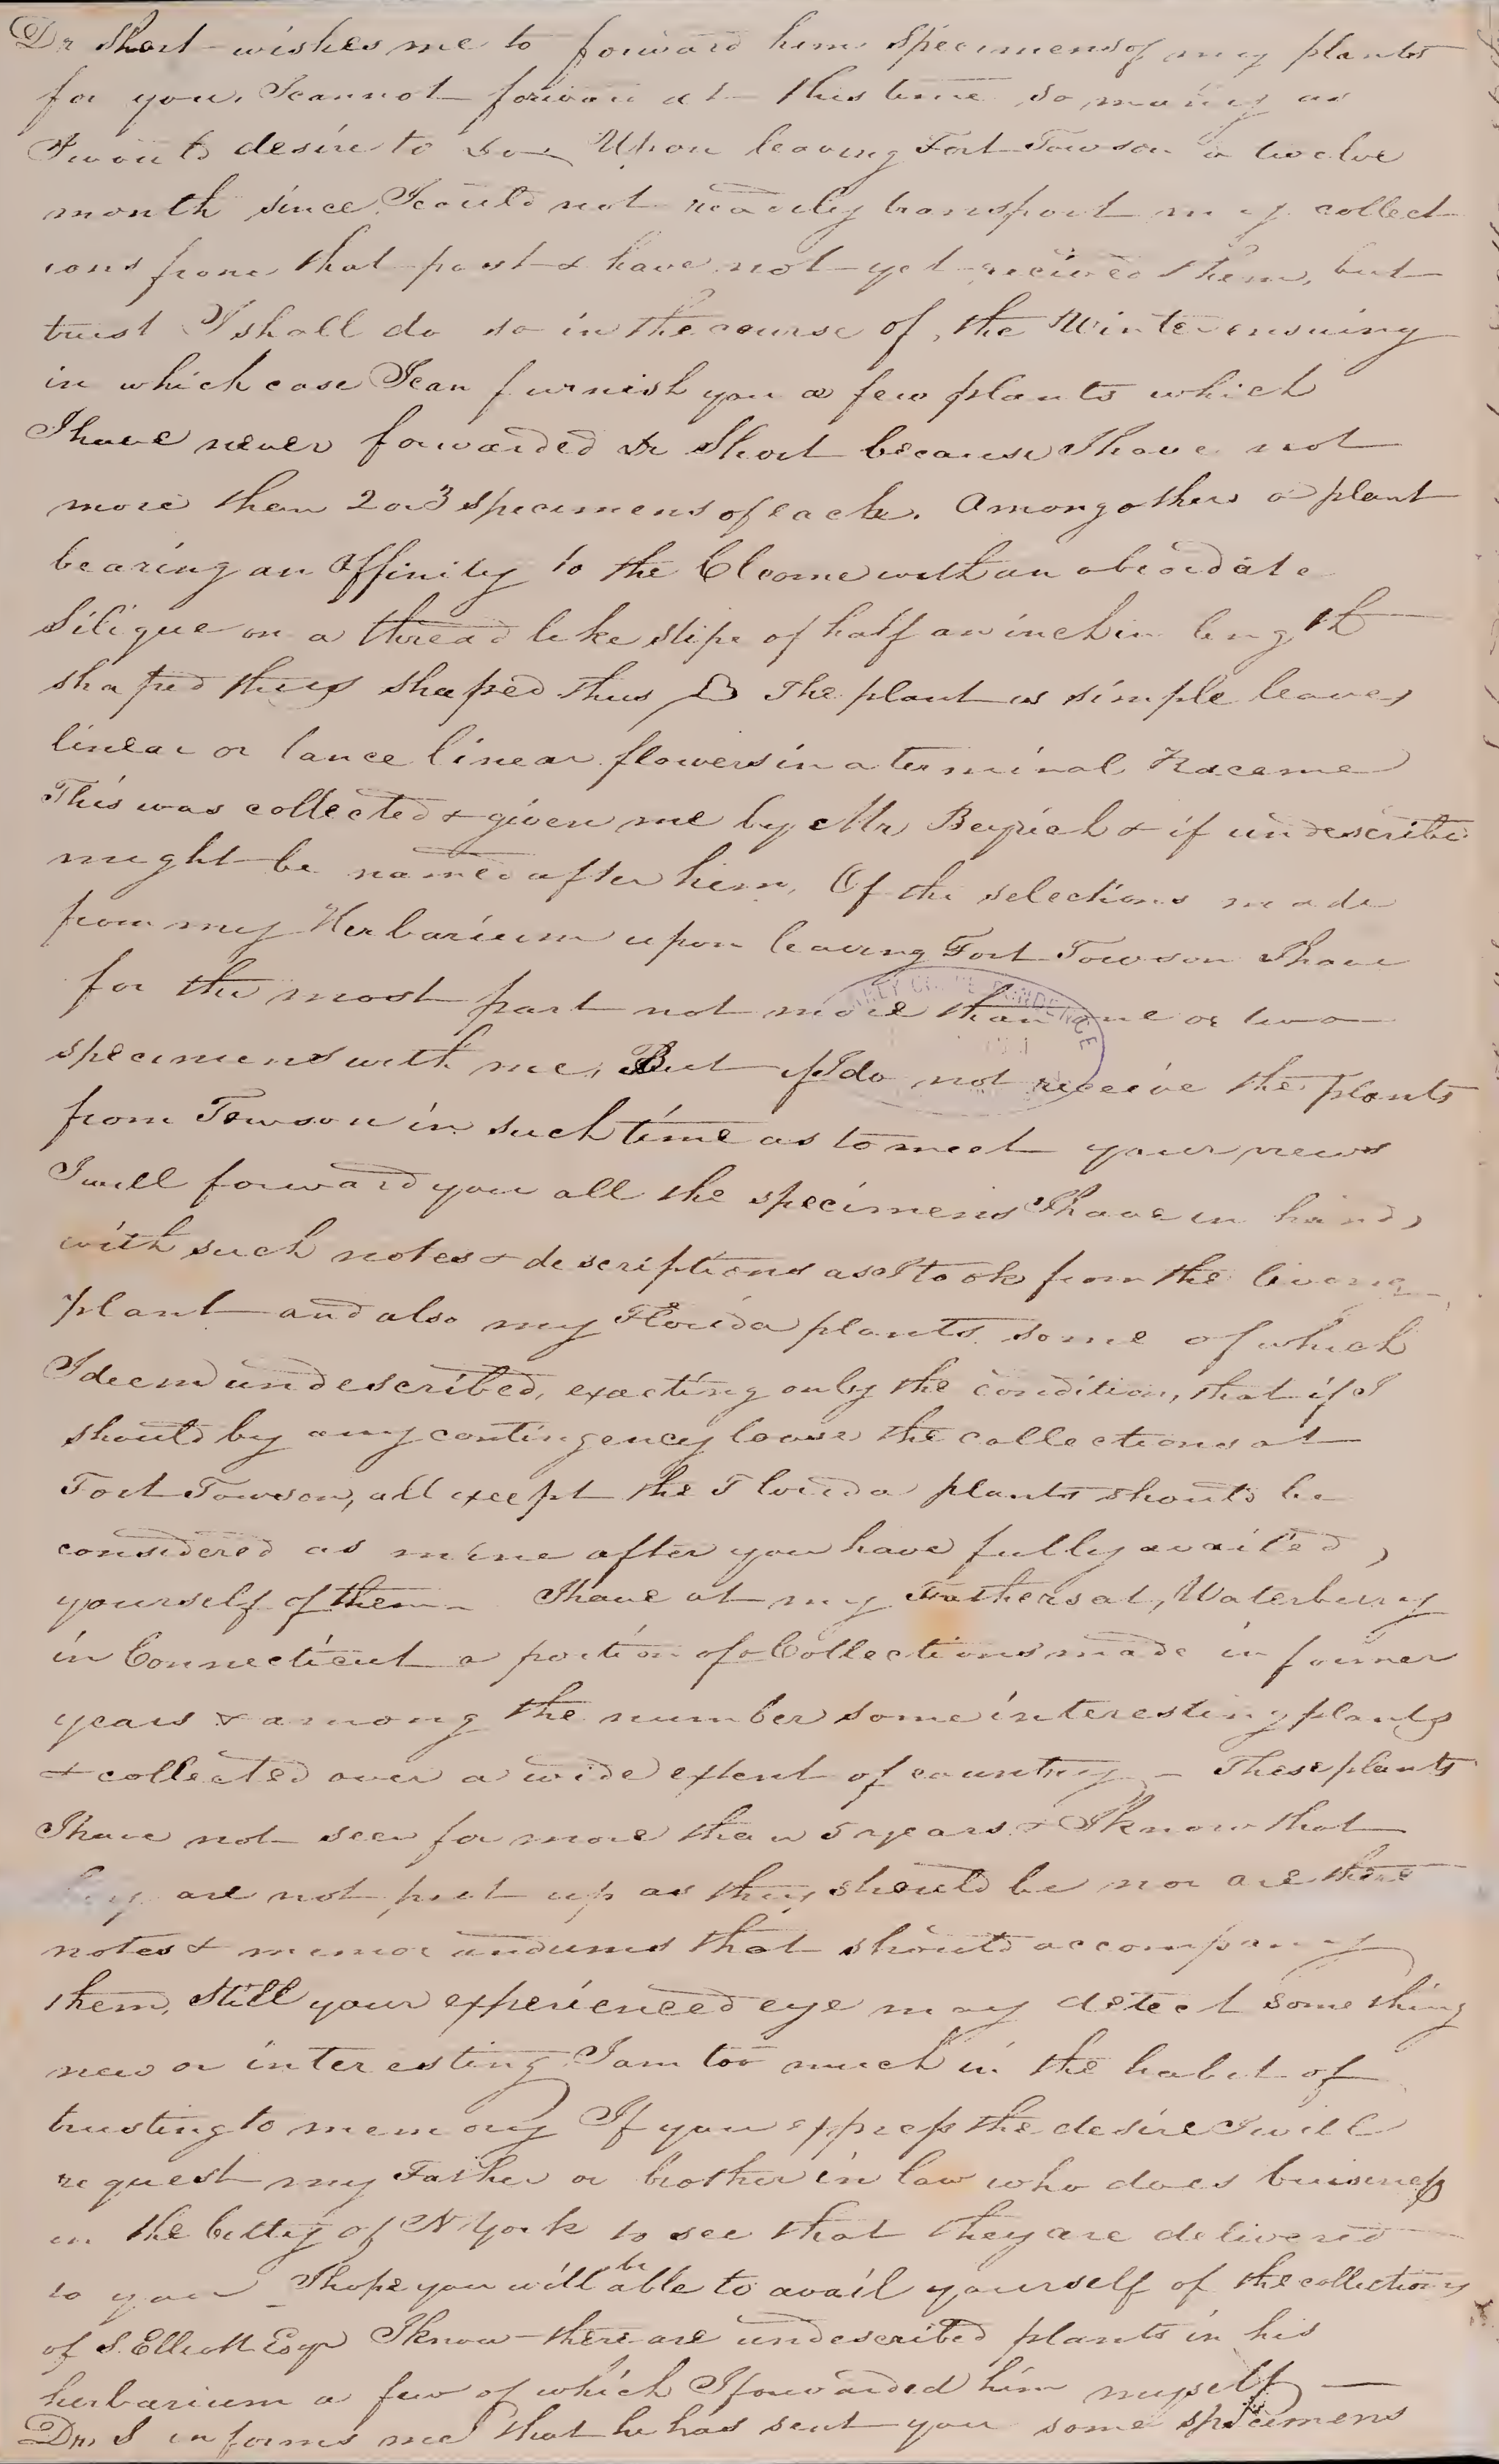 Dr Short wishes me to forward him specimens of my plants
for you. I cannot forward at this time so many as
I would desire to do. Upon leaving Fort Towson a twelve
month since I could not readily transport my collect
ions from that post & have not yet recieved them, but
trust I shall do so in the course of the Winter ensuing
in which case I can furnish you a few plants which
I have never forwarded Dr Short because I have not
more than 2 or 3 specimens of each. Among others a plant
bearing an affinity to the Cleome with an obcordate
Silique on a thread like stipe of half an inch in length
shaped thus shaped thus The plant is simple leaves
linear or lance linear flowers in a terminal Raceme
This was collected & given me by Mr Beyrich & if undescribed
might be named after him. Of the selections made
from my Herbarium upon leaving Fort Towson I have
for the most part not more than one or two
specimens with me. But if I do not receive the plants
from Towson in such time as to meet your views
I will forward you all the specimens I have in hand,
with such notes & descriptions as I took from the living
plant and also my Florida plants some of which
I deem undescribed, exacting only the condition, that if I
should by any contingency loose the collections at
Fort Towson, all except the Florida plants should be
considered as mine after you have fully availed,
yourself of them - I have at my Fathers at, Waterbury
in Connecticut a portion of Collections made in former
years & among the number some interesting plants
& collected over a wide extent of country - These plants
I have not seen for more than 5 years & I know that
they are not put up as they should be nor are there
notes & memorandums that should accompany
them, still your experienced eye may detect something
new or interesting I am too much in the habit of
trusting to memory If you express the desire I will
request my Father or brother in law who does buisness
in the Citty of N York to see that they are delivered
to you - I hope you will be able to avail yourself of the collections
of S. Elliott Esqr I know there are undescribed plants in his
herbarium a few of which I forwarded him myself -
Dr. S informs me that he has sent you some specimens